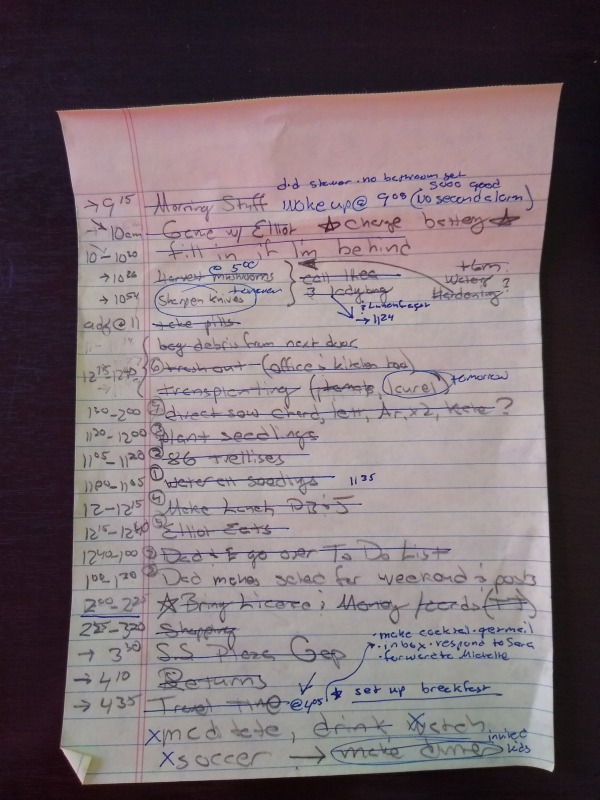 did shower · no bathroom yet
→ 9 15 Morning Stuff Woke up @ 9 08 (No second alarm)
sooo good
→ 10 am Game w/ Elliot ☆ charge battery ☆
10 - 10 20 fill in if I'm behind
→ Harvest mushrooms @ 5 00 call
→ 10 54 Sharpen knives tomorrow ? ladybug
→ 11 24
@ 11 take pills
beg debris from next door
12 15 - 12 40 ⑥ trash out (office & kitchen too)
transplanting ( , laurel) tomorrow
1 30 - 2 00 ⑦ direct sow chard, lett, Ar, x2, Kale?
11 20 - 12 00 ③ plant seedlings
11 05 - 11 20 ② 86 trellises
11 00 - 11 05 ① water all seedlings 11 35
12 - 12 15 ④ Make Lunch PB&J
12 15 - 12 40 ⑤ Elliot Eats
12 40 - 1 00 Dad & E go over To Do List
1 00 - 1 20 Dad makes salad for weekend &
2 00 - 2 25 ☆ Bring License & Money / cards
2 25 - 3 20 Shopping
· make cocktail · germail
→ 3 30 S.S Plaza Gap · inbox · respond to Sara
· forward to Michelle
→ 4 10 Returns
→ 4 35 Travel Time @ 4 05 ☆ set up breakfast
x meditate, drink x watch
x soccer → make dinner invited kids